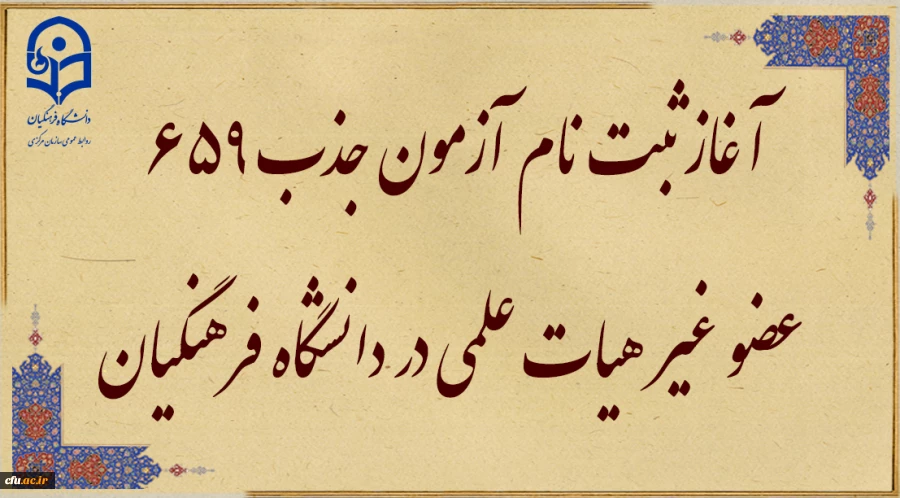 دانشگاه فرهنگیان
روابط عمومی سازمان مرکزی
آغاز ثبت نام آزمون جذب ۶۵۹
عضو غیر هیات علمی در دانشگاه فرهنگیان
cfu.ac.ir